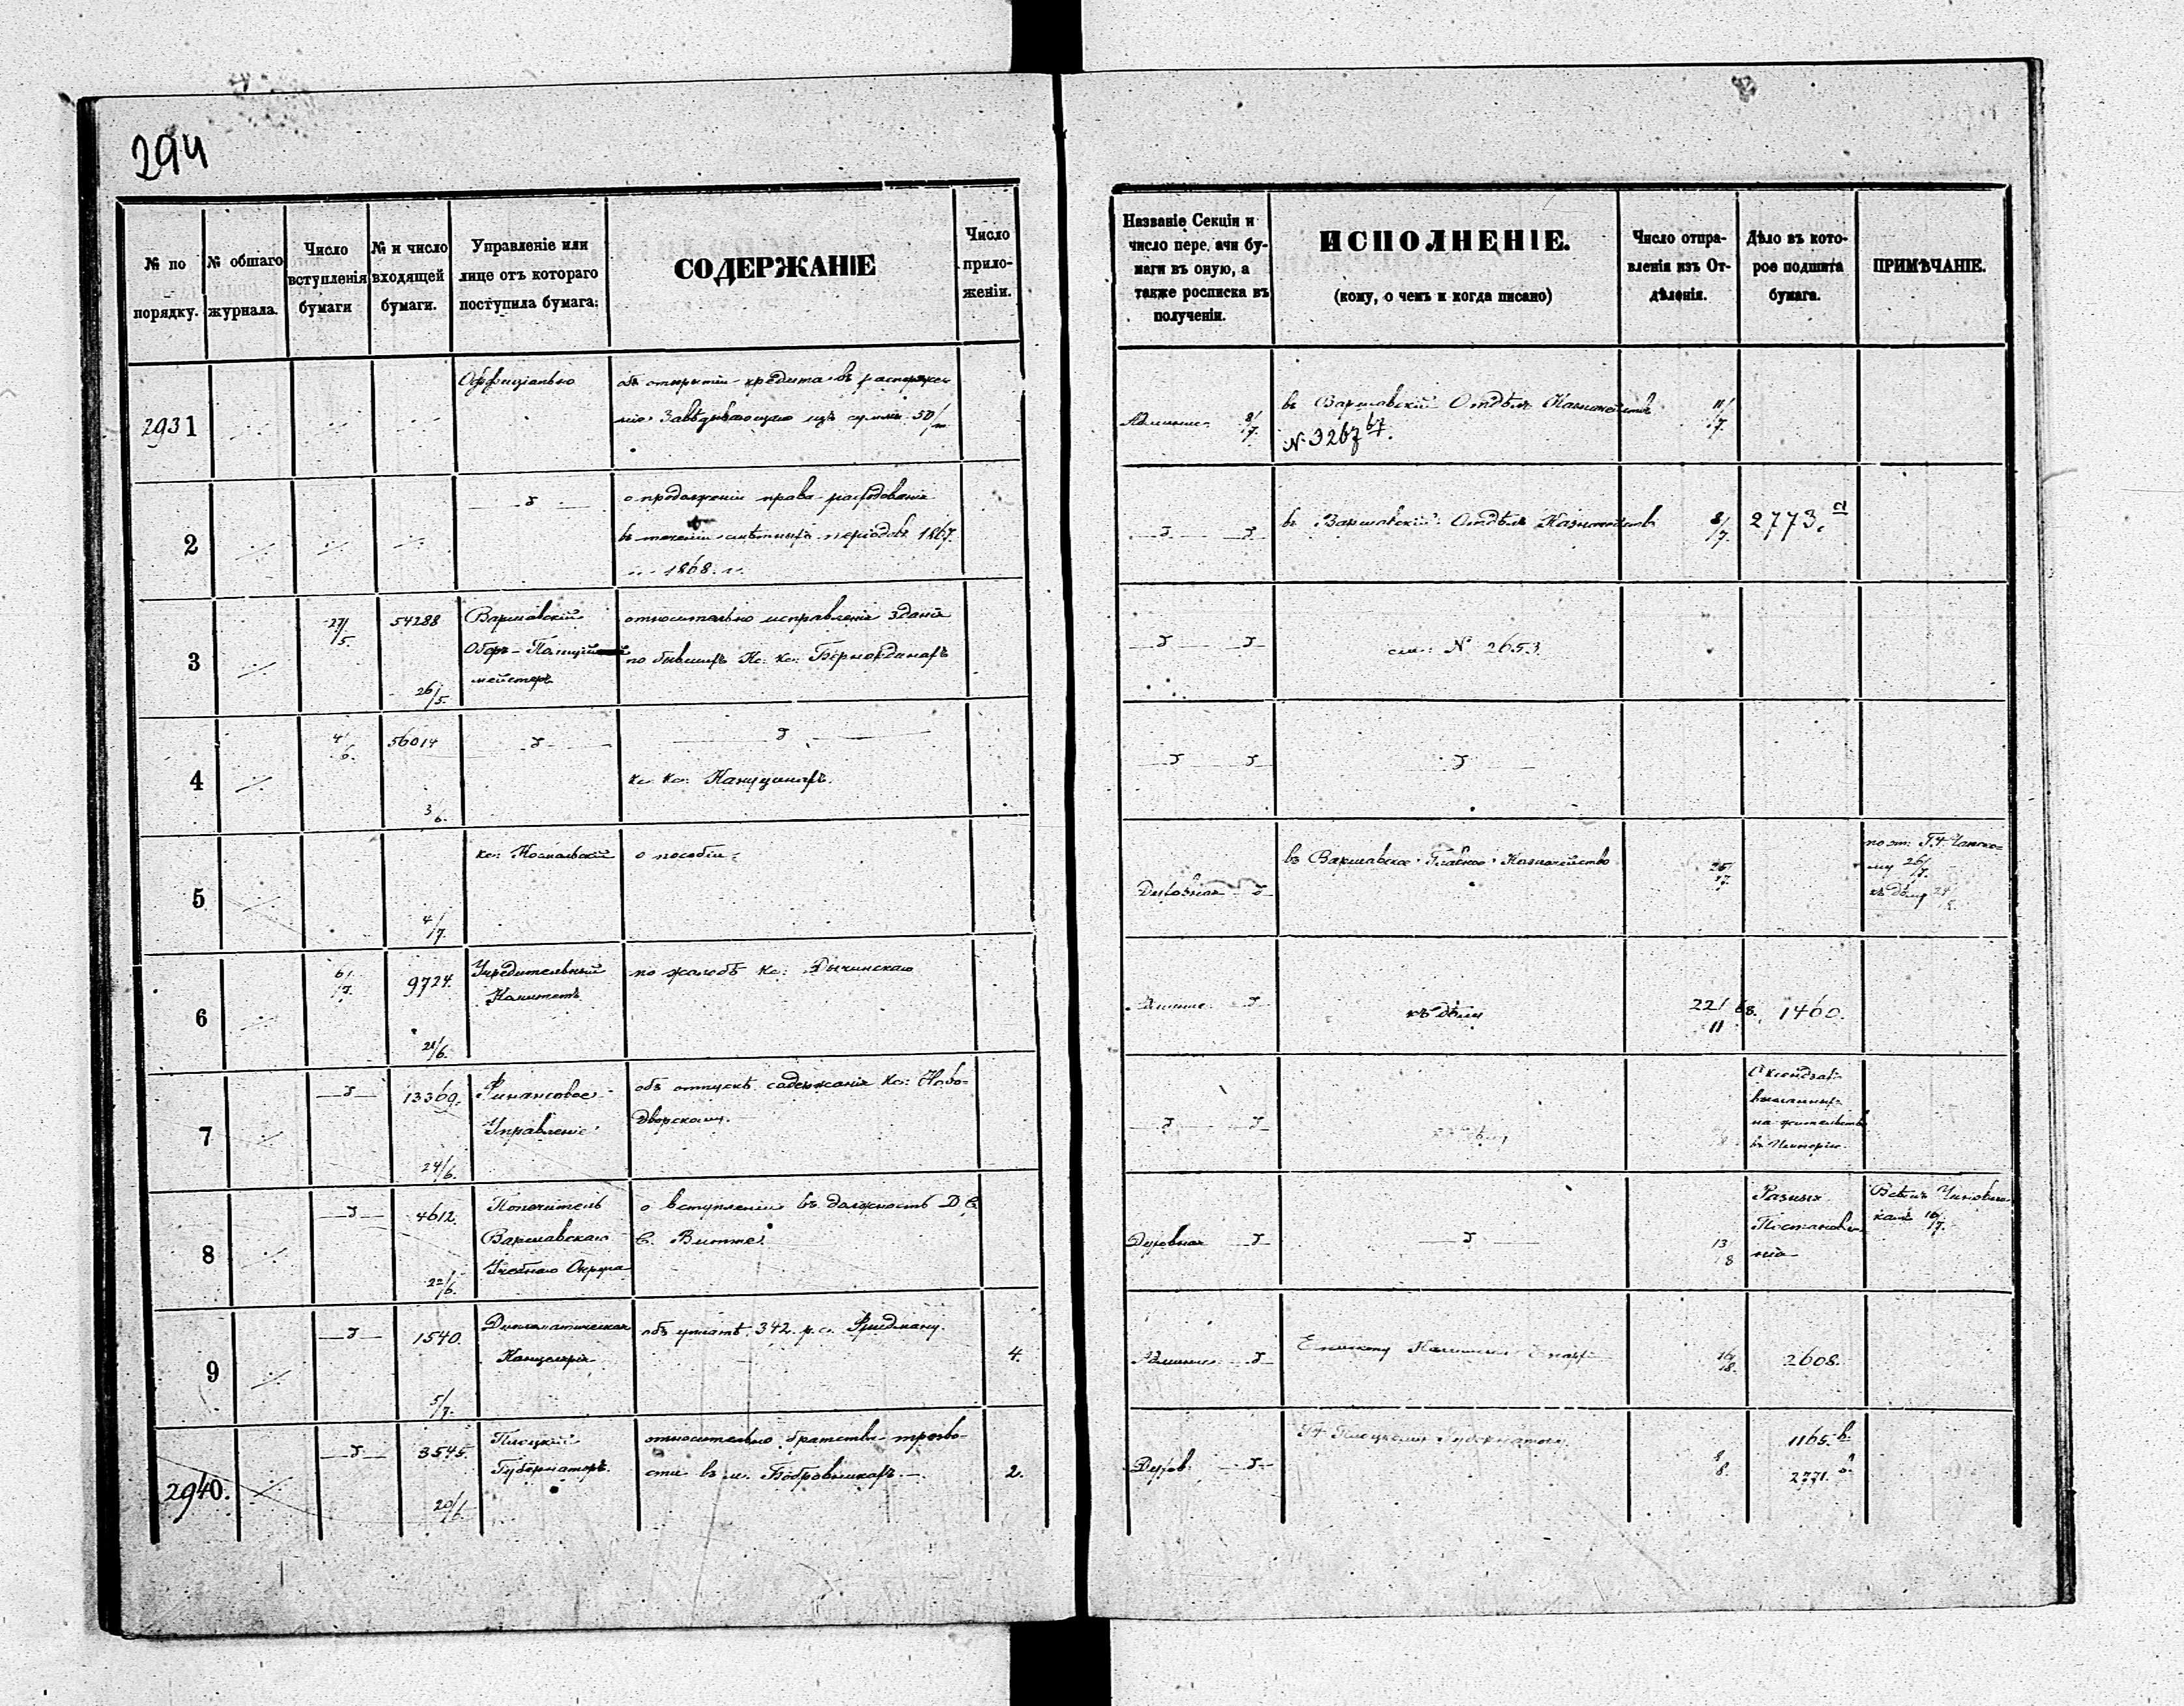 294
№ по порядку.
№ общаго журнала.
Число вступленія бумаги
№ и число входящей бумаги.
Управленіе или лице отъ котораго поступила бумага:
СОДЕРЖАНІЕ
Число приложеніи.
Названіе Секціи и число пере.ачи бумаги въ оную, а также росписка въ полученіи.
ИСПОЛНЕНІЕ.
(кому, о чемъ и когда писано)
Число отправленія изъ Отдѣленія.
Дѣло въ которое подшита бумага.
ПРИМѢЧАНІЕ.
2931
Оффиціально
объ открытіи кредита въ распоряже-
ніе Завѣдывающаго изъ суммы 50/м
8/7.
въ Варшавскій Отдѣлъ Казначейства
№ 3267 67.
11/7.
2
о продолженіи права расходованія
въ теченіи смѣтныхъ періодовъ 1867
1868. г.
въ Варшавскій Отдѣлъ Казначейства
8/7.
2773. a
3
27/5.
54288
26/5.
Варшавскій
Оберъ-Полиций
мейстеръ
относительно исправленія зданія
по бывшихъ Кс: Кс: Бернардинахъ
см: № 2653.
4
4/6.
56014
3/6.
Кс. Кс: Капуцинахъ.
5
4/7.
кс:
о пособіи.
Духовная
въ Варшавское Главное Казначейство
25/7.
26/7.
къ дѣлу
6
6/7.
9724.
21/6.
Учредительный
Комитетъ
по жалобѣ Кс: Рычинскаго
къ дѣлу
22/11 68.
1460.
7
13369.
24/6.
Финансовое
Управленіе
объ отпускѣ содержанія Кс: Ново-
дворскому.
О ксендзахъ
высланныхъ
на жительство
въ Имперію
8
4612.
22/6.
Попечитель
Варшавскаго
Учебнаго Округа
о вступленіи въ должность Д. С.
С. Витте.
Духовная
13/8
Разныя
Постановле
нія
Всѣмъ Чиновни-
камъ 16/7.
9
1540.
5/7.
Дипломатическая
Канцелярія
объ уплатѣ 342 р.с. Фридману.
4.
16/8.
2608.
2940.
3545.
20/6.
Плоцкій
Губернаторъ.
относительно братства трезво-
сти въ м. Бобровникахъ.
2.
Духов.
Плоцкому Губернатору
8/8.
1165. b.
2771.